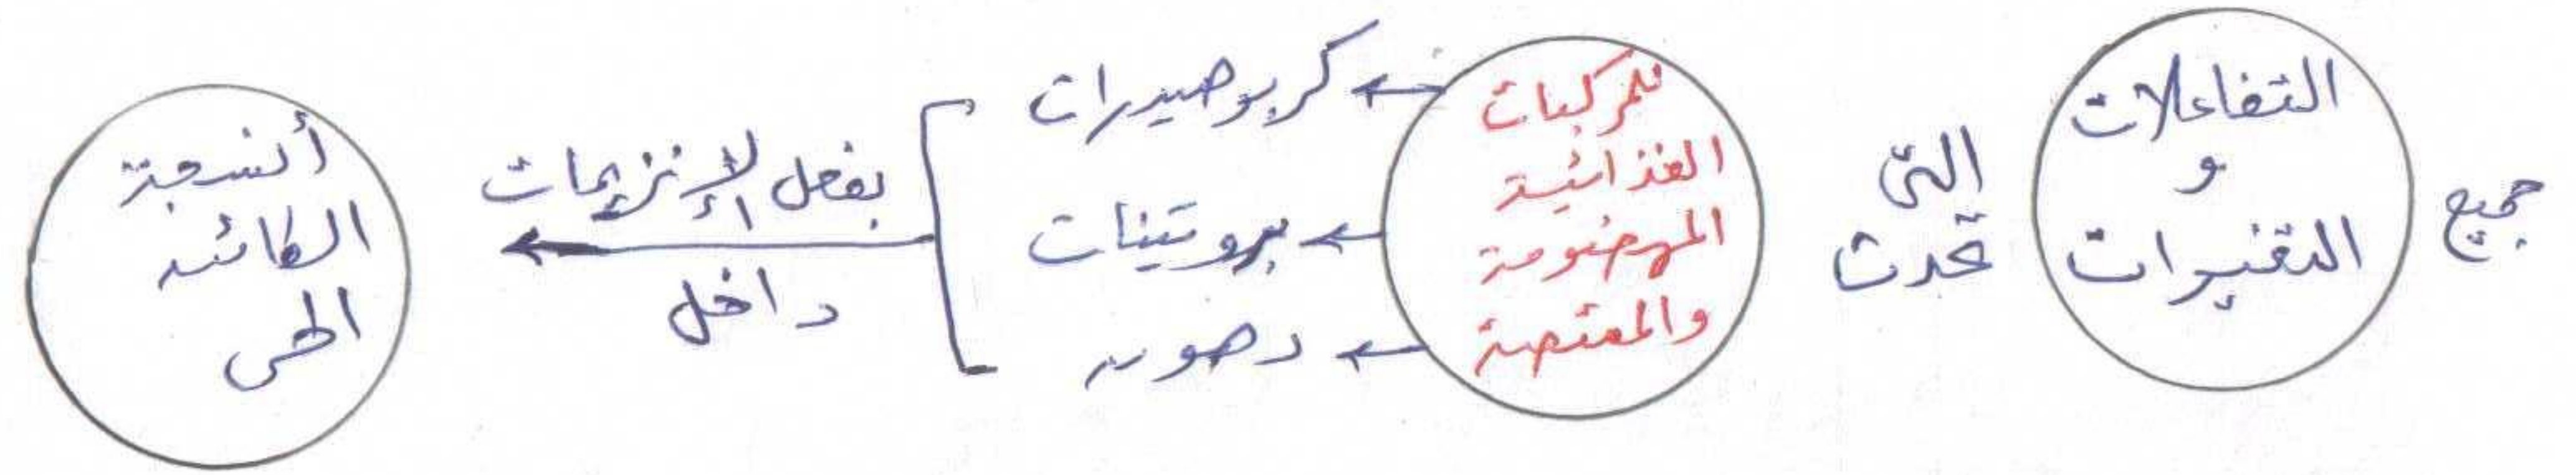 جميع
التفاعلات
و
التغيرات
التى
تحدث
للمركبات
الغذائية
المهضومة
والممتصة
كربوهيدرات
بروتينات
دهون
بفعل الإنزيمات
داخل
أنسجة
الكائن
الحى